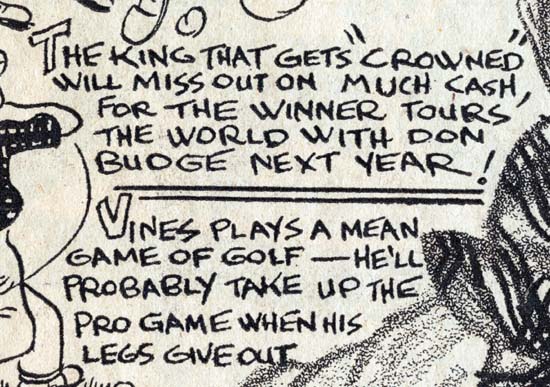 THE KING THAT GETS "CROWNED"
WILL MISS OUT ON MUCH CASH,
FOR THE WINNER TOURS
THE WORLD WITH DON
BUDGE NEXT YEAR!
VINES PLAYS A MEAN
GAME OF GOLF — HE'LL
PROBABLY TAKE UP THE
PRO GAME WHEN HIS
LEGS GIVE OUT